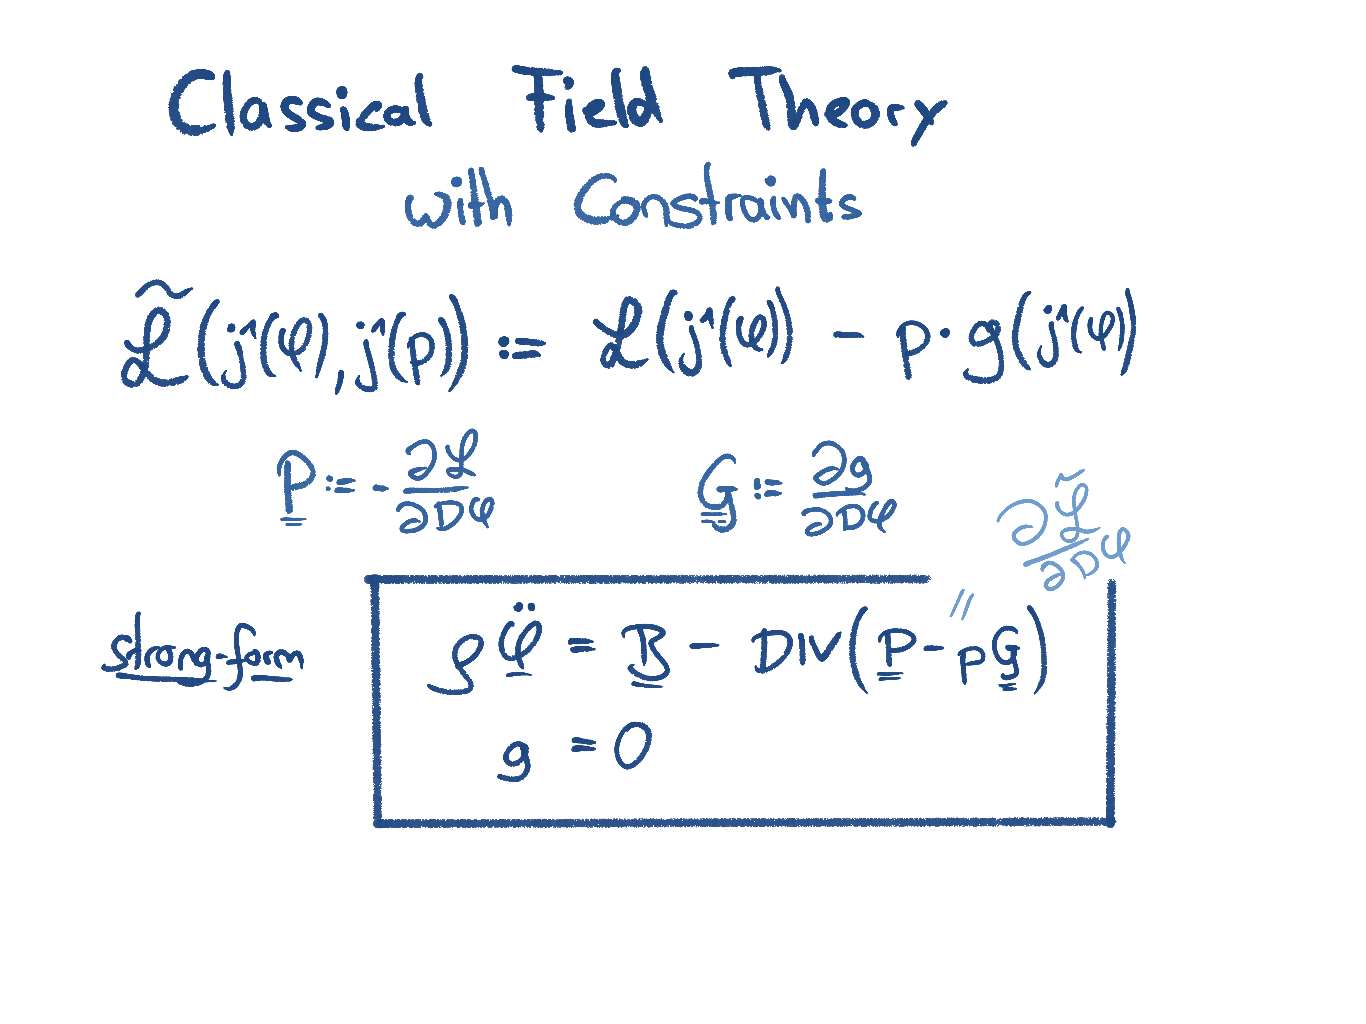 Classical Field Theory
with Constraints
ℒ̃(j¹(φ), j¹(p)) := ℒ(j¹(φ)) − p·g(j¹(φ))
P := - ∂ℒ/∂Dφ    G := ∂g/∂Dφ
∂ℒ̃/∂Dφ
=
strong-form    ρ φ̈ = B − DIV(P − pG)
g = 0